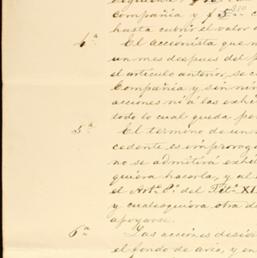 Compañia y $ 5
hasta cubrir el valor d
4ª El accionista que n
un mes despues del p
el artículo anterior, se c
Compañia y sin nin
acciones ni á las exhi
todo lo cual queda pe
5ª El término de un
cedente es improrog
no se admitirá exhi
quiera hacerla, y al
el Artº 8º del Titº XI
y cualesquiera otra d
apoyarse.
6ª Las acciones desie
el fondo de avio, y en